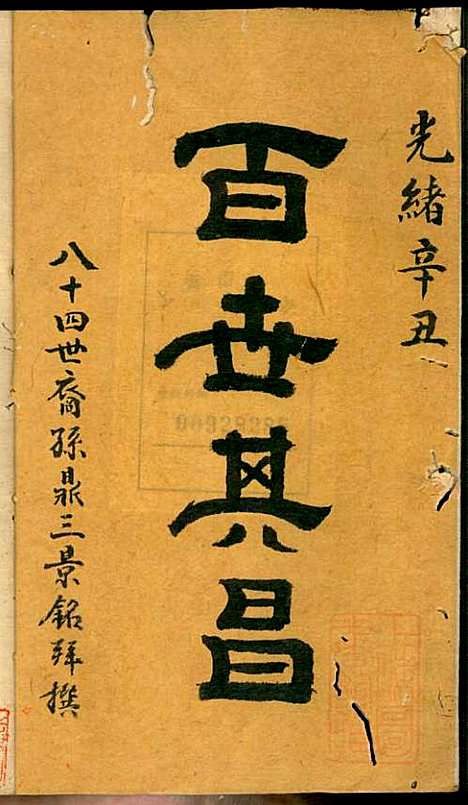 光緒辛丑
百世其昌
八十四世裔孫鼎三景銘拜撰